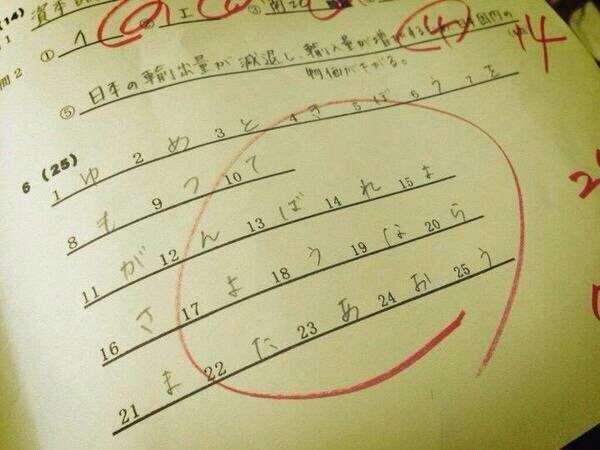 (14) 資本
① ② エ ③
⑤ 日本の輸出量が減退し、輸入量が増
物価がさがる。
+4
6 (25)
1 ゆ 2 め 3 と 4 き 5 ぼ 6 う 7 を
8 も 9 つ 10 て
11 が 12 ん 13 ば 14 れ 15 よ
16 さ 17 よ 18 う 19 な 20 ら
21 ま 22 た 23 あ 24 お 25 う